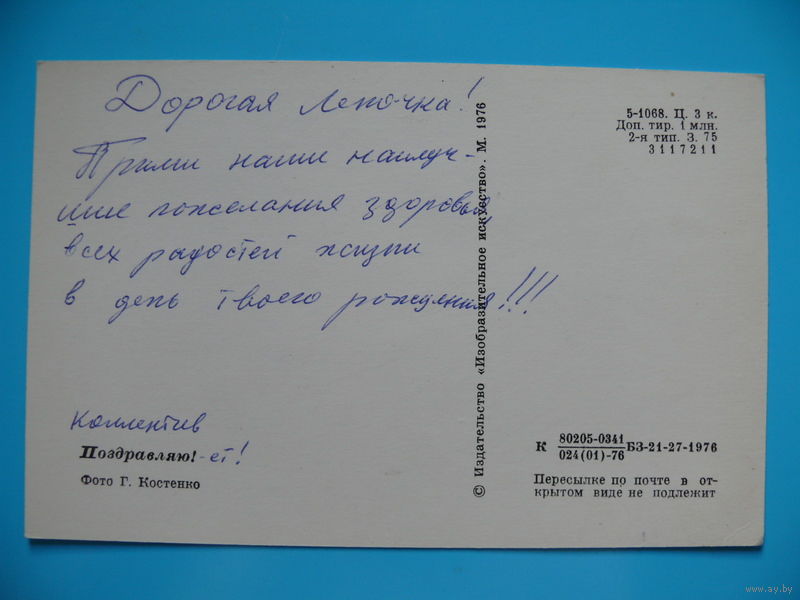 Дорогая Леночка!
Прими наши наилуч-
шие пожелания здоровья,
всех радостей жизни
в день твоего рождения!!!
коллектив
Поздравляю! -ет!
Фото Г. Костенко
© Издательство «Изобразительное искусство». М. 1976
5-1068. Ц. 3 к.
Доп. тир. 1 млн.
2-я тип. З. 75
3117211
К 80205-0341 БЗ-21-27-1976
024(01)-76
Пересылке по почте в от-
крытом виде не подлежит
www.ay.by